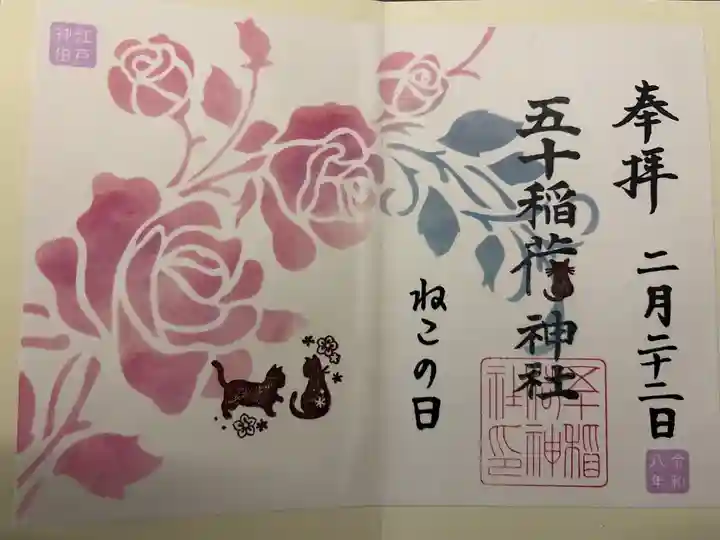 奉拝
二月二十二日
令和八年
五十稲荷神社
ねこの日
江戸
神田